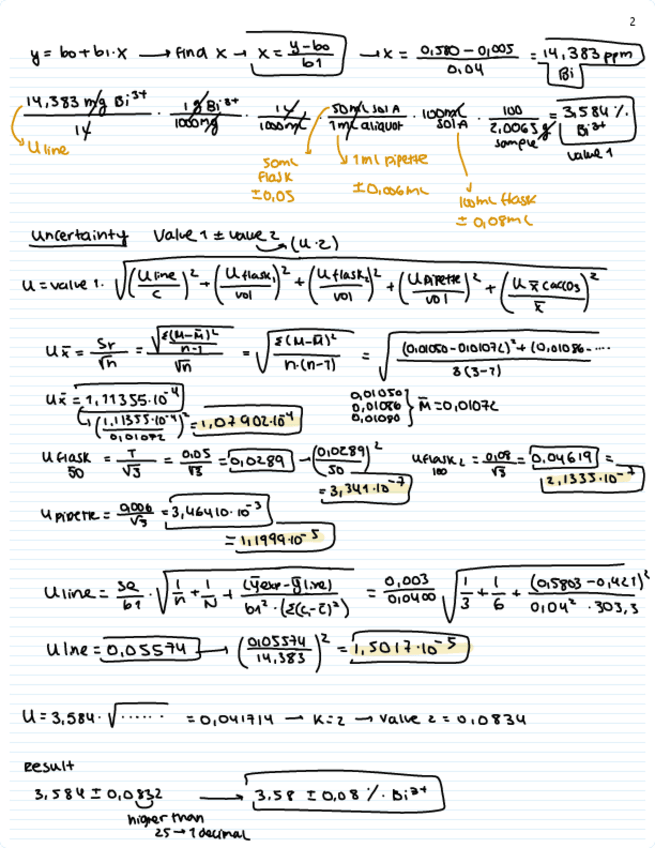 2
y = b0 + b1 · x → find x → x = (y - b0)/b1 → x = (0,580 - 0,005)/0,04 = 14,383 ppm Bi
14,383 mg Bi³⁺/1L · 1g Bi³⁺/1000mg · 1L/1000mL · 50mL sol A/1mL aliquot · 100mL sol A · 100/2,0065g sample = 3,584 % Bi³⁺
U line
value 1
50mL flask ±0,05
1ml pipette ±0,006mL
100mL flask ± 0,08mL
uncertainty value 1 ± value 2 → (u·2)
U = value 1 · √((U line/c)² + (U flask₁/vol)² + (U flask₂/vol)² + (U pipette/vol)² + (U x̄ CaCO3/x̄)²)
U x̄ = Sr/√n = √(Σ(M-M̄)²/n-1)/√n = √(Σ(M-M̄)²/n·(n-1)) = √((0,01050 - 0,01072)² + (0,01086 - ..../3(3-1))
U x̄ = 1,11355·10⁻⁴
0,01050
0,01086
0,01080 } M̄ = 0,01072
(1,11355·10⁻⁴/0,01072)² = 1,07902·10⁻⁴
U flask 50 = T/√3 = 0,05/√3 = 0,0289 → (0,0289/50)² = 3,341·10⁻⁷
U flask₂ 100 = 0,08/√3 = 0,04619 = 2,1335·10⁻⁷
U pipette = 0,006/√3 = 3,46410·10⁻³
= 1,1999·10⁻⁵
U line = se/b1 · √(1/n + 1/N + (ȳexp - ȳline)/b1²·(Σ(ci-c̄)²)) = 0,003/0,0400 √(1/3 + 1/6 + (0,5803 - 0,421)²/0,04² · 303,3
U lne = 0,05574 → (0,05574/14,383)² = 1,5017·10⁻⁵
U = 3,584 · √...... = 0,041714 → K=2 → value 2 = 0,0834
result
3,584 ± 0,0832 → 3,58 ± 0,08 % Bi³⁺
higher than
25 → 1 decimal